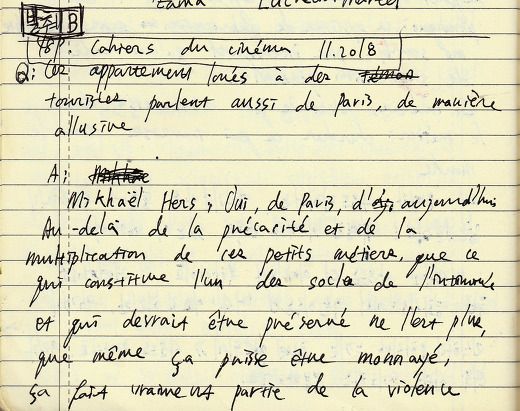 Zama Lucrecia Martel
B
48P. Cahiers du cinéma 11.2018
Q: Ces appartement loués à des
touristes parlent aussi de Paris, de manière
allusive
A:
Mikhaël Hers ; Oui, de Paris, d'aujourd'hui
Au-delà de la précarité et de la
multiplication de ces petits métiers, que ce
qui constitue l'un des socle de l'intimité
et qui devrait être préservé ne l'est plus,
que même ça puisse être monnayé,
ça fait vraiment partie de la violence